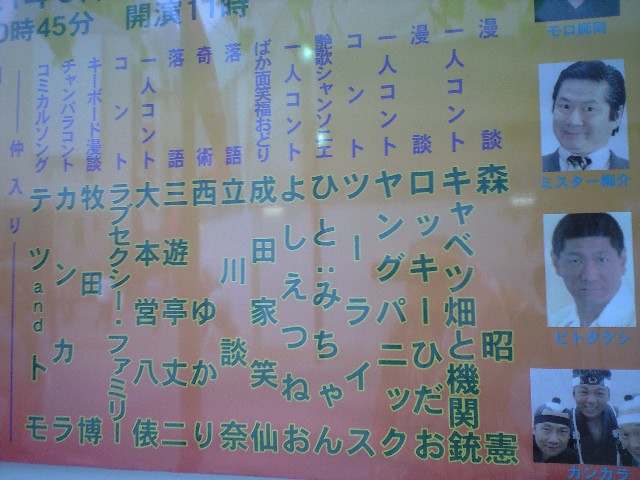 開演11時
0時45分
漫談 森昭憲
一人コント キャベツ畑と機関銃
漫談 ロッキーひだお
一人コント ヤングパニック
コント ツーライス
艶歌シャンソニエ ひと:みちゃん
一人コント よしえつねお
ばか面笑福おどり 成田家笑仙
落語 立川談奈
奇術 西ゆかり
落語 三遊亭丈二
一人コント 大本営八俵
コント ラブセクシー・ファミリー
キーボード漫談 牧田博
チャンバラコント カンカラ
コミカルソング テツandトモ
仲入り
モロ師岡
ミスター梅介
ビトタケシ
カンカラ